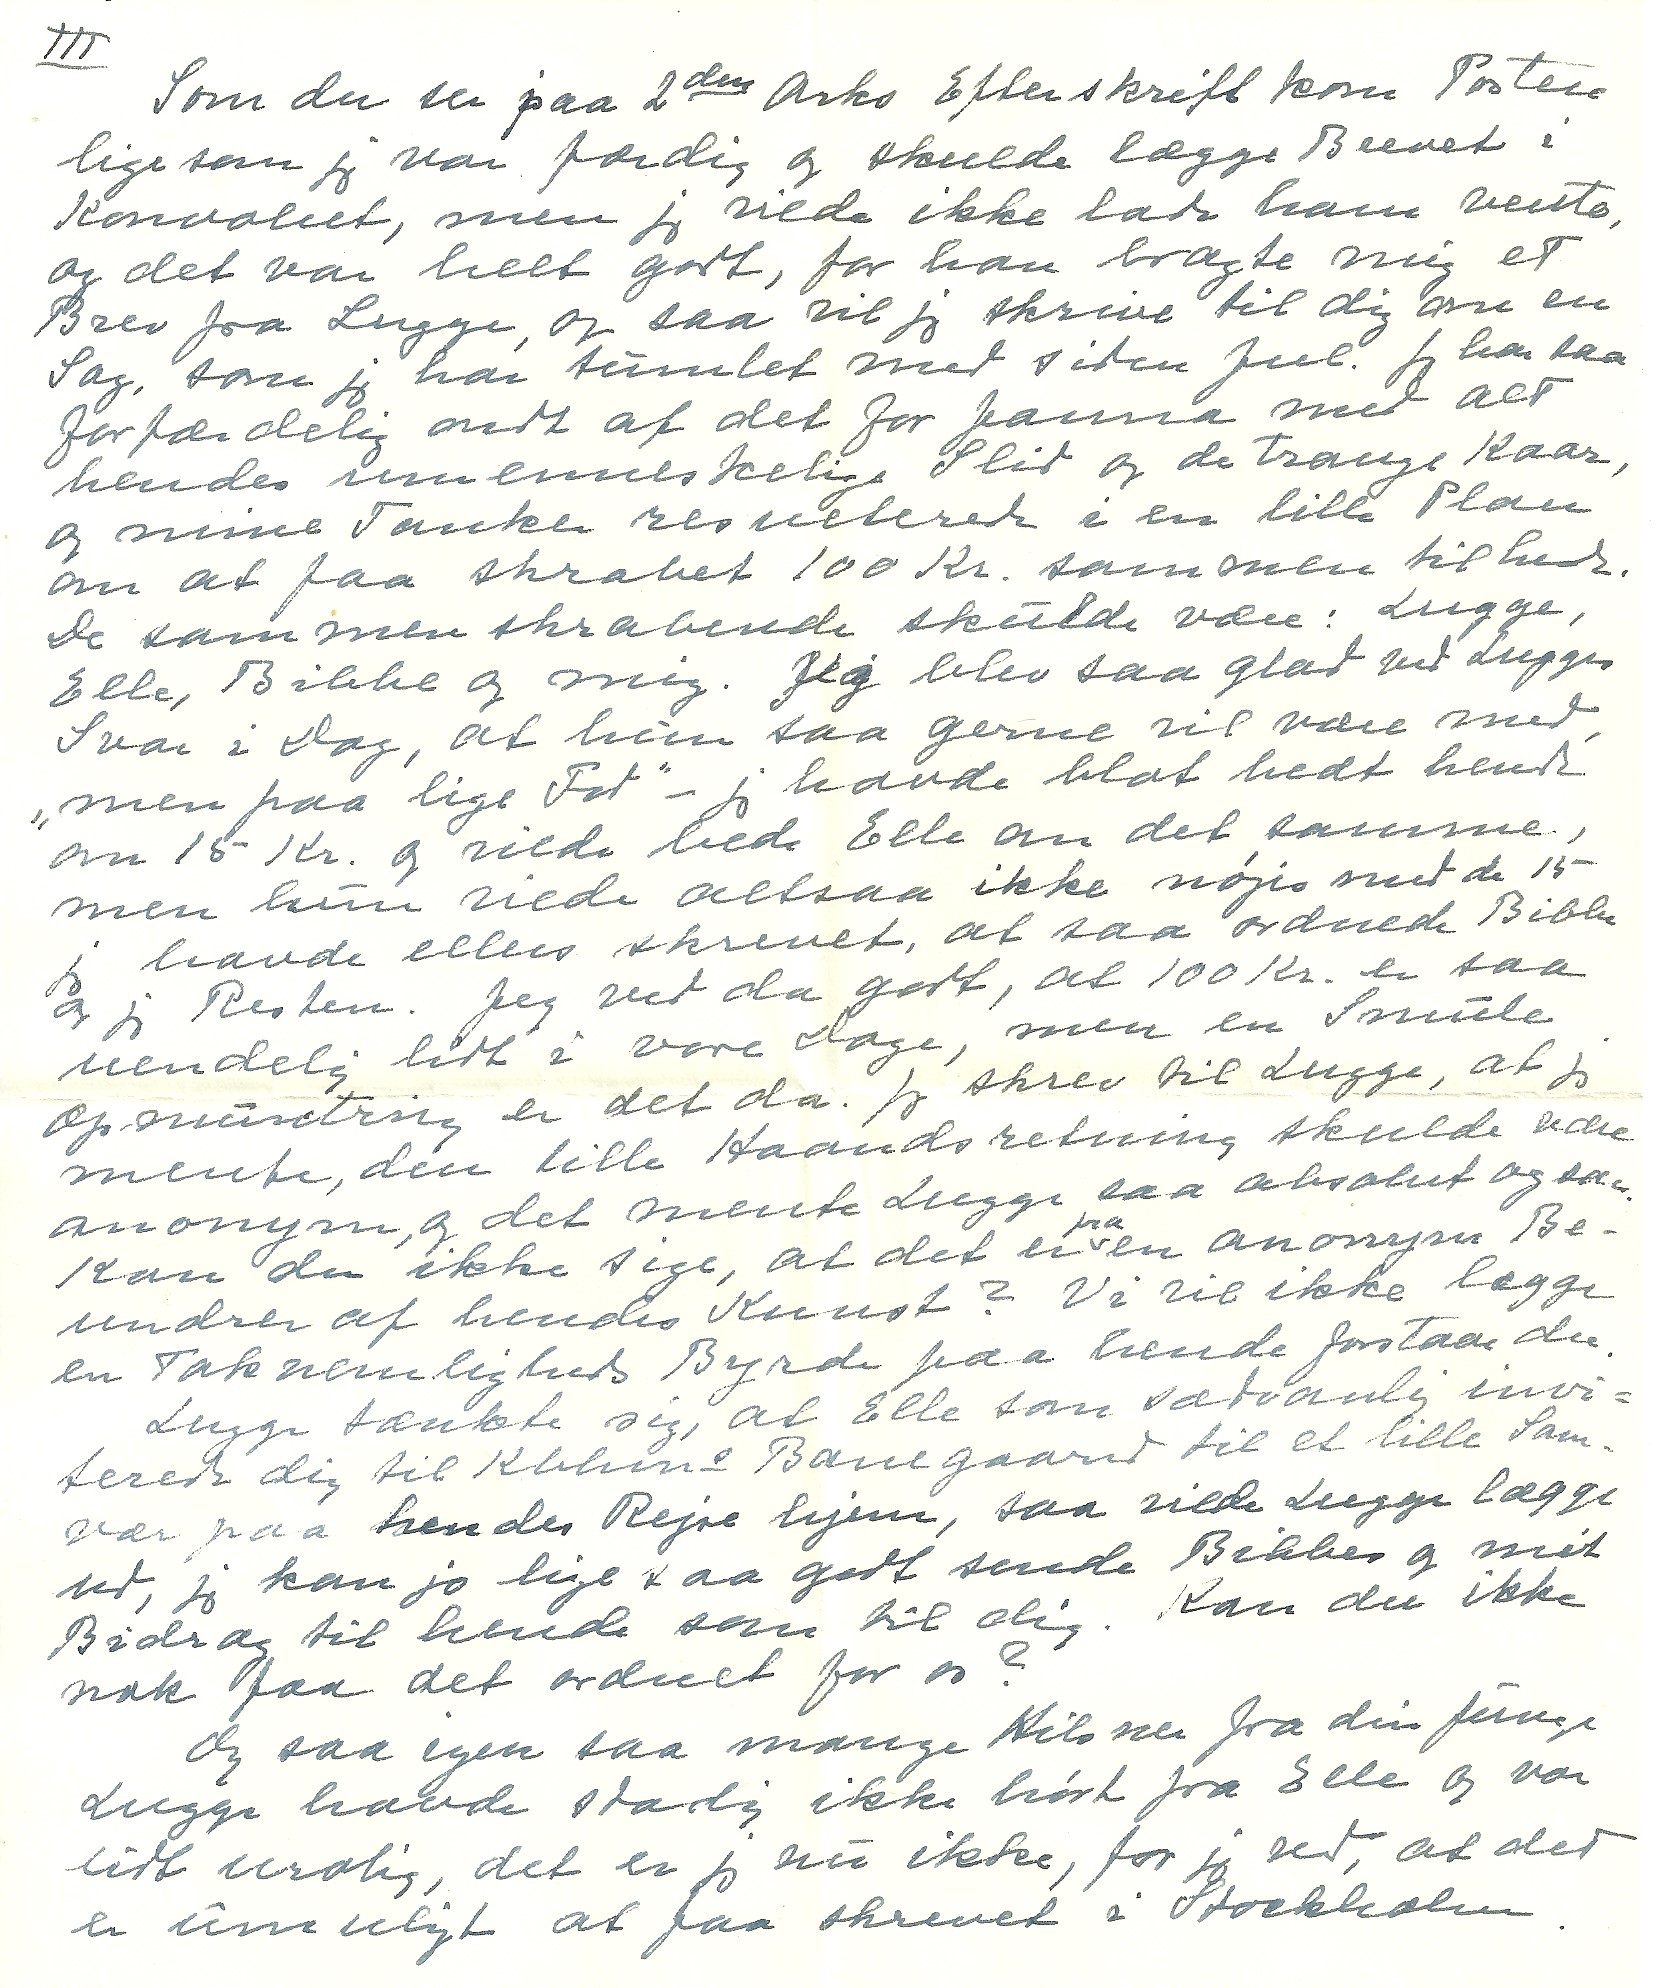 III
Som du ser paa 2den Arks Efterskrift kom Posten
lige som jeg var færdig og skulde lægge Brevet i
Konvolut, men jeg vilde ikke lade ham vente,
og det var helt godt, for han bragte mig et
Brev fra Lugge, og saa vil jeg skrive til dig om en
Sag, som jeg har tumlet med siden Jul. Jeg har saa
forfærdelig ondt af det for Janna med alt
hendes umenneskelige Slid og de trange Kaar,
og mine Tanker resulterede i en lille Plan
om at faa skrabet 100 Kr. sammen til hende.
De sammenskrabende skulde være: Lugge,
Elle, Bibbe og mig. Jeg blev saa glad ved Lugges
Svar i Dag, at hun saa gerne vil være med,
„men paa lige Fod" – jeg havde blot bedt hende
om 15 Kr. og vilde bede Elle om det samme,
men hun vilde altsaa ikke nøjes med de 15
jeg havde ellers skrevet, at saa ordnede Bibbe
og jeg Resten. Jeg ved da godt, at 100 Kr. er saa
uendelig lidt i vore Dage, men en Smule
Opmuntring er det da. Jeg skrev til Lugge, at jeg
mente, den lille Haandsretning skulde være
anonym, og det mente Lugge saa absolut ogsaa.
Kan du ikke sige, at det er fra en anonym Be-
undrer af hendes Kunst? Vi vil ikke lægge
en Taknemligheds Byrde paa hende forstaar du.
Lugge tænkte sig, at Elle som sædvanlig invi=
terede dig til Kbhvns Banegaard til et lille Sam-
vær paa hendes Rejse hjem, saa vilde Lugge lægge
ud, jeg kan jo lige saa godt sende Bibbes og mit
Bidrag til hende som til dig. Kan du ikke
nok faa det ordnet for os?
Og saa igen saa mange Hilsner fra din Junge
Lugge havde stadig ikke hørt fra Elle og var
lidt urolig, det er jeg nu ikke, for jeg ved, at det
er umuligt at faa skrevet i Stockholm.